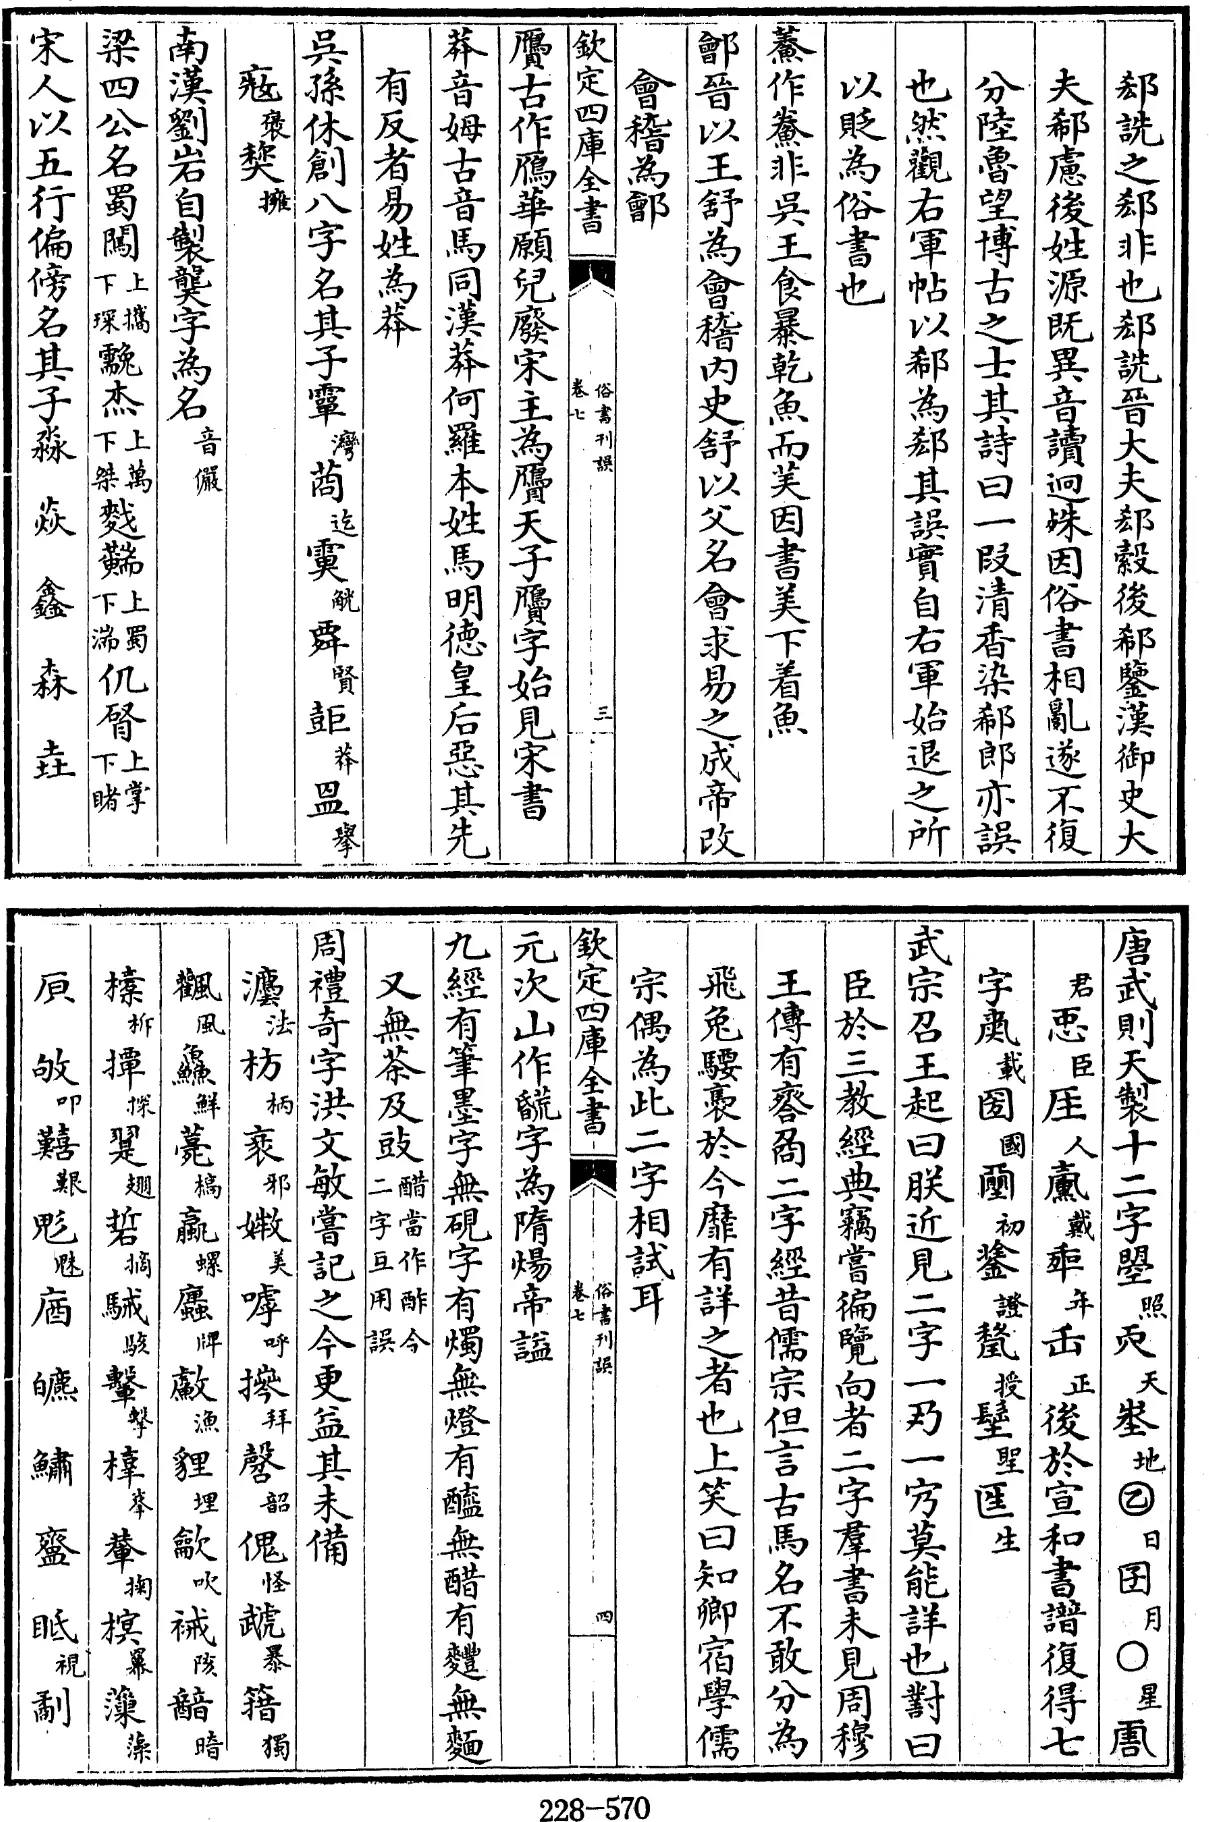 郄詵之郄非也郄詵晉大夫郄縠後郗鑒漢御史大
夫郗慮後姓源既異音讀迥殊因俗書相亂遂不復
分陸魯望博古之士其詩曰一段清香染郗郎亦誤
也然觀右軍帖以郗為郄其誤實自右軍始退之所
以貶為俗書也
鯗作鮝非吳王食暴乾魚而美因書美下着魚
鄫晉以王舒為會稽內史舒以父名會求易之成帝改
會稽為鄫
欽定四庫全書
俗書刊誤
卷七
三
贗古作鴈華願兒廢宋主為贗天子贗字始見宋書
莽音姆古音馬同漢莽何羅本姓馬明德皇后惡其先
有反者易姓為莽
吳孫休創八字名其子𩅦灣𦮶迄𩃙觥𠅨賢𧯏莽昷舉
寇褒㷏擁
南漢劉岩自製龑字為名音儼
梁四公名蜀闖上攜下琛䨲杰上萬下桀𪎮䵎上蜀下湍仉䏽上掌下睹
宋人以五行偏傍名其子淼焱鑫森垚
唐武則天製十二字曌照𠑺天埊地𡆠日囝月〇星𠁈
君𢘑臣𤯔人𡕀載𠦚年𠙺正後於宣和書譜復得七
字𡕀載圀國𡔈初𨭻證𥠢授𨲢聖𤯔生
武宗召王起曰朕近見二字一𢎧一㝏莫能詳也對曰
臣於三教經典竊嘗徧覽向者二字羣書未見周穆
王傳有䆩㕟二字經昔儒宗但言古馬名不敢分為
飛兔騕褭於今靡有詳之者也上笑曰知卿宿學儒
宗偶為此二字相試耳
欽定四庫全書
俗書刊誤
卷七
四
元次山作㡆字為隋煬帝謚
九經有筆墨字無硯字有燭無燈有醯無醋有麷無麵
又無茶及豉醋當作酢今二字互用誤
周禮奇字洪文敏嘗記之今更益其未備
灋法枋柄衺邪媺美嘑呼𢷎拜磬韶傀怪虣暴籍獨
飌風鱻鮮薧槁蠃螺蠯牌䱷漁貍埋龡吹祴陔韽暗
櫜柝撢探翨翅硩摘駴駭轚擊㯸拲輂掬榠冪薻藻
𠩺㪣叩囏艱鬽魅庮皫鱐齍眡視劀
228-570